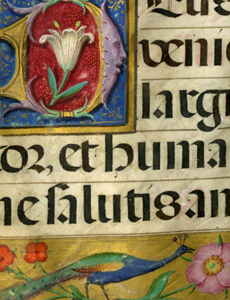 DEus
veni
largi
tor, et huma
ne salutis am